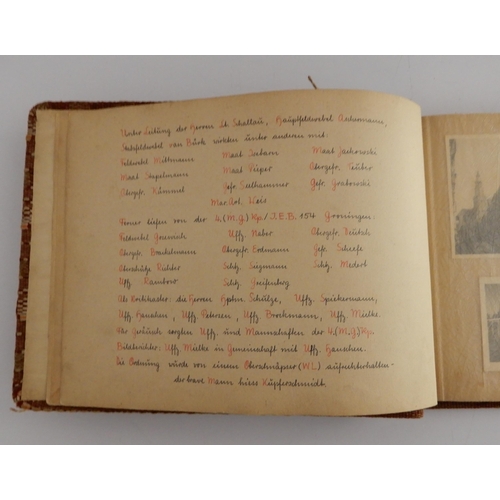 Unter Leitung der Herren Lt. Schallau, Hauptfeldwebel Ackermann,
Stabsfeldwebel van Bürk wirkten unter anderen mit:
Feldwebel Mittmann Maat Sabarn Maat Jackowski
Maat Stapelmann Maat Küper Obergefr. Teuber
Obergefr. Kümmel Gefr. Seelhammer Gefr. Grabowski
Mar. Art. Lois
Ferner liefen von der 4.(M.G.) Kp./J.E.B. 454 Groningen:
Feldwebel Uffz. Naber Obergefr. Deutsch
Obergefr. Brachelmann Obergefr. Erdmann Gefr. Schiefe
Oberschütze Richter Schtz. Siegmann Schtz. Medort
Uffz. Rambow Schtz. Greifenberg
Als Breitkater: die Herren Hptm. Schülze, Uffz. Spickermann,
Uffz. Hanschen, Uffz. Petersen, Uffz. Brockmann, Uffz. Mielke.
Für Geräusch sorgten Uffz. und Mannschaften der 4.(M.G) Kp.
Bildberichter: Uffz. Mielke in Gemeinschaft mit Uffz. Hanschen.
Die Ordnung würde von einem Oberschnäpser (W.L.) aufrechterhalten-
der brave Mann hiess Küpferschmidt.